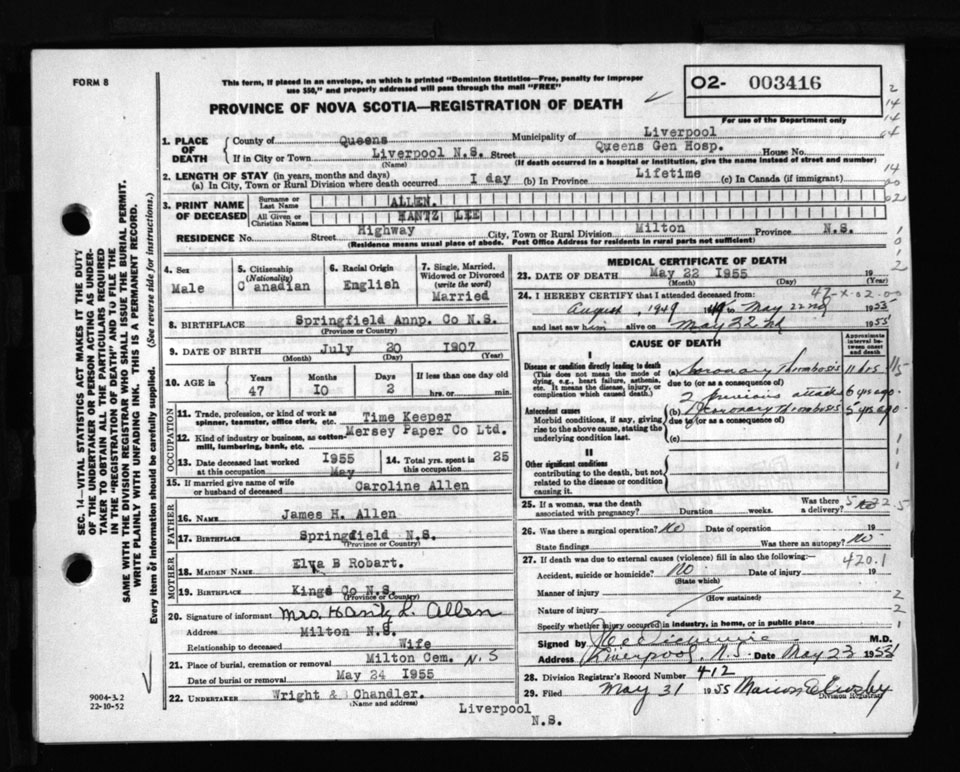 FORM 8
This form, if placed in an envelope, on which is printed "Dominion Statistics—Free, penalty for improper
use $50," and properly addressed will pass through the mail "FREE"
PROVINCE OF NOVA SCOTIA—REGISTRATION OF DEATH
O2- 003416
For use of the Department only
2
14
14
04
14
00
02
1. PLACE OF DEATH
County of Queens Municipality of Liverpool
If in City or Town Liverpool N.S. Street Queens Gen Hosp. House No.
(Name) (If death occurred in a hospital or institution, give the name instead of street and number)
2. LENGTH OF STAY (in years, months and days)
(a) In City, Town or Rural Division where death occurred I day (b) In Province Lifetime (c) In Canada (if immigrant)
3. PRINT NAME OF DECEASED
Surname or Last Name ALLEN.
All Given or Christian Names HANTZ LEE
RESIDENCE No. Street Highway City, Town or Rural Division Milton Province N.S.
(Residence means usual place of abode. Post Office Address for residents in rural parts not sufficient)
4. Sex Male
5. Citizenship (Nationality) Canadian
6. Racial Origin English
7. Single, Married, Widowed or Divorced (write the word) Married
8. BIRTHPLACE Springfield Annp. Co N.S.
(Province or Country)
9. DATE OF BIRTH July 20 1907
(Month) (Day) (Year)
10. AGE in Years 47 Months 10 Days 2 If less than one day old hrs. or min.
OCCUPATION
11. Trade, profession, or kind of work as
spinner, teamster, office clerk, etc. Time Keeper
12. Kind of industry or business, as cotton-
mill, lumbering, bank, etc. Mersey Paper Co Ltd.
13. Date deceased last worked at this occupation 1955 May
14. Total yrs. spent in this occupation 25
15. If married give name of wife
or husband of deceased Caroline Allen
FATHER
16. NAME James H. Allen
17. BIRTHPLACE Springfield N.S.
(Province or Country)
MOTHER
18. MAIDEN NAME Elva B Robart.
19. BIRTHPLACE Kings Co N.S.
(Province or Country)
20. Signature of informant Mrs. Hantz L. Allen
Address Milton N.S.
Relationship to deceased Wife
21. Place of burial, cremation or removal Milton Cem. N.S
Date of burial or removal May 24 1955
22. UNDERTAKER Wright & Chandler.
(Name and address)
Liverpool
N.S.
9004-3.2
22-10-52
SEC. 14—VITAL STATISTICS ACT MAKES IT THE DUTY
OF THE UNDERTAKER OR PERSON ACTING AS UNDER-
TAKER TO OBTAIN ALL THE PARTICULARS REQUIRED
IN THE "REGISTRATION OF DEATH" AND TO FILE THE
SAME WITH THE DIVISION REGISTRAR WHO SHALL ISSUE THE BURIAL PERMIT.
WRITE PLAINLY WITH UNFADING INK. THIS IS A PERMANENT RECORD.
Every item of information should be carefully supplied. (See reverse side for instructions.)
MEDICAL CERTIFICATE OF DEATH
23. DATE OF DEATH May 22 1955 19
(Month) (Day)
24. I HEREBY CERTIFY that I attended deceased from:
47-X-02-00
August, 1949 to May 22nd 1955
and last saw him alive on May 22nd 1955
CAUSE OF DEATH
Approximate interval between onset and death
I
Disease or condition directly leading to death
(This does not mean the mode of
dying, e.g., heart failure, asthenia,
etc. It means the disease, injury, or
complication which caused death.)
(a) Coronary Thrombosis 11 hrs.
due to (or as a consequence of)
2 previous attacks 6 yrs ago
Antecedent causes
Morbid conditions, if any, giving
rise to the above cause, stating the
underlying condition last.
(b) Coronary Thrombosis 5 yrs ago
due to (or as a consequence of)
(c)
II
Other significant conditions
contributing to the death, but not
related to the disease or condition
causing it.
25. If a woman, was the death
associated with pregnancy? Duration weeks. Was there a delivery?
26. Was there a surgical operation? No Date of operation 19
State findings Was there an autopsy? No
27. If death was due to external causes (violence) fill in also the following:—
420.1
Accident, suicide or homicide? No Date of injury 19
(State which)
Manner of injury
(How sustained)
Nature of injury
Specify whether injury occurred in industry, in home, or in public place
Signed by M.D.
Address Liverpool, N.S. Date May 23 1955
28. Division Registrar's Record Number 412
29. Filed May 31 1955 Marion Crosby
Division Registrar